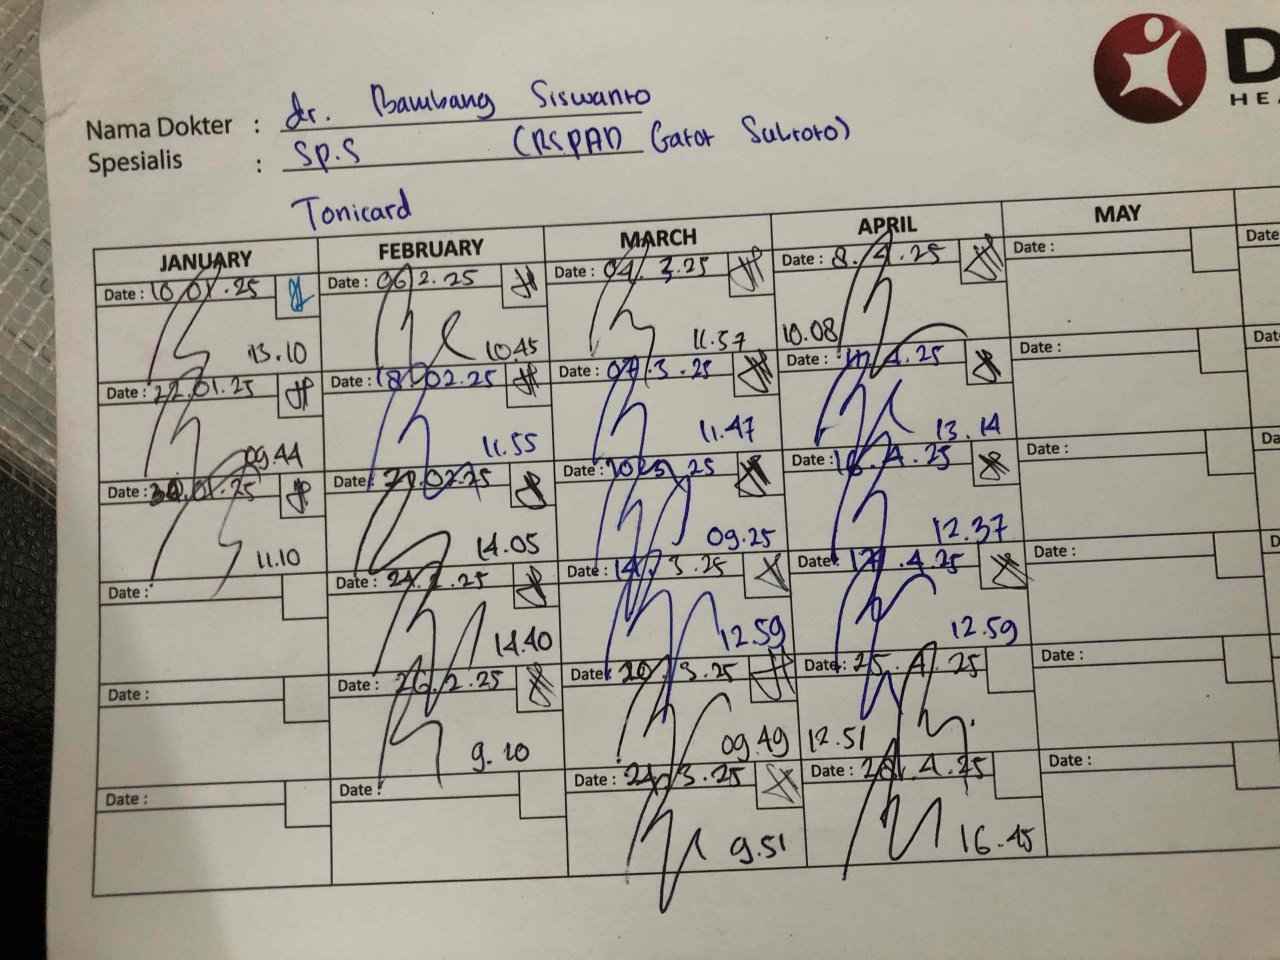 D
HEA
Nama Dokter : dr. Bambang Siswanto
Spesialis : Sp.S (RSPAD Gatot Subroto)
Tonicard
JANUARY FEBRUARY MARCH APRIL MAY
Date : 10.01.25 Date : 06.2.25 Date : 04.3.25 Date : 8.4.25 Date : Date
13.10 10.45 11.57 10.08
Date : 22.01.25 Date : 18.02.25 Date : 07.3.25 Date : 4.25 Date : Dat
09.44 11.55 11.47 13.14
Date : 01.25 Date : 02.25 Date : 10 25 Date : 16.4.25 Date : Da
11.10 14.05 09.25 12.37
Date : Date : 24.2.25 Date : 14.3.25 Date : 17.4.25 Date : D
14.40 12.59 12.59
Date : Date : 26.2.25 Date : 20.3.25 Date : 25.4.25 Date :
9.10 09.49 12.51
Date : Date : Date : 24.3.25 Date : 28.4.25 Date :
9.51 16.45